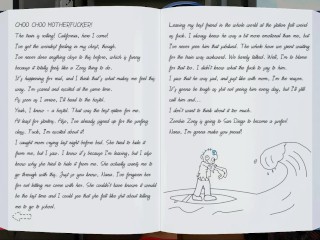 CHOO CHOO MOTHERFUCKER!
The train is rolling! California, here I come!
I've got the weirdest feeling in my chest, though.
I've never done anything close to this before, which is funny
because it totally feels like a Zonzy thing to do.
It's happening for real, and I think that's what makes me feel this
way. I'm scared and excited at the same time.
As soon as I arrive, I'll head to the hostel.
Yeah, I know - a hostel. That was the best option for me.
At least for starters. Also, I've already signed up for the surfing
class. Fuck, I'm excited about it!
I caught mom crying last night before bed. She tried to hide it
from me, but I saw. I know it's because I'm leaving, but I also
know why she tried to hide it from me. She actually wants me to
go through with this. Just so you know, Nana, I've forgiven her
for not letting me come with her. She couldn't have known it would
be the last time and I could see that she felt like shit about letting
me to go to school.
Leaving my best friend in the whole world at the station felt weird
as fuck. I always knew he was a bit more emotional than me, but
I've never seen him that subdued. The whole time we spent waiting
for the train was awkward. We barely talked. Well, I'm to blame
for that too. I didn't know what the fuck to say to him.
I saw that he was sad, and just like with mom, I'm the reason.
It's gonna be tough as shit not seeing him every day, but I'll still
call him and...
I don't want to think about it too much.
Zombie Zonzy is going to San Diego to become a surfer!
Nana, I'm gonna make you proud!